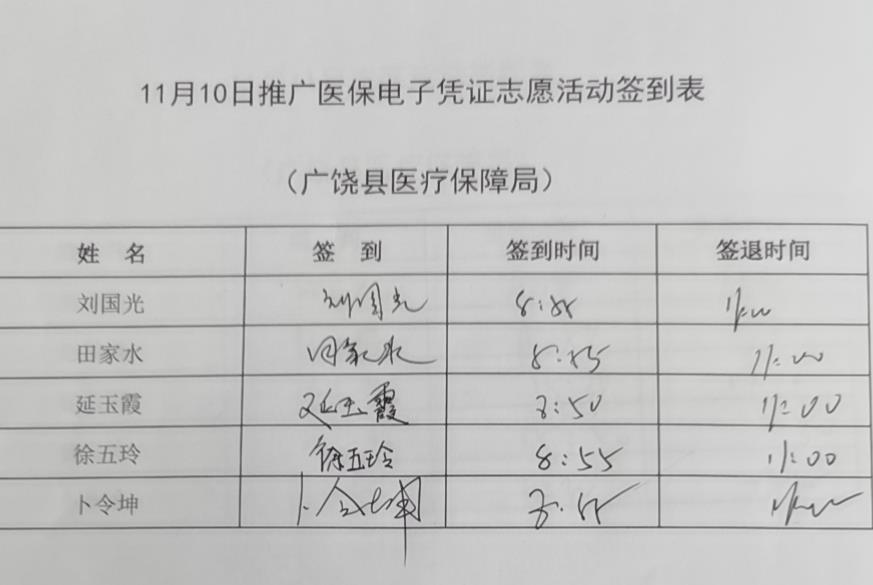 11月10日推广医保电子凭证志愿活动签到表
(广饶县医疗保障局)
姓 名 签 到 签到时间 签退时间
刘国光 刘国光 11:00
田家水 田家水 8:55 11:00
延玉霞 延玉霞 8:50 11:00
徐五玲 徐五玲 8:55 11:00
卜令坤 卜令坤 11:00